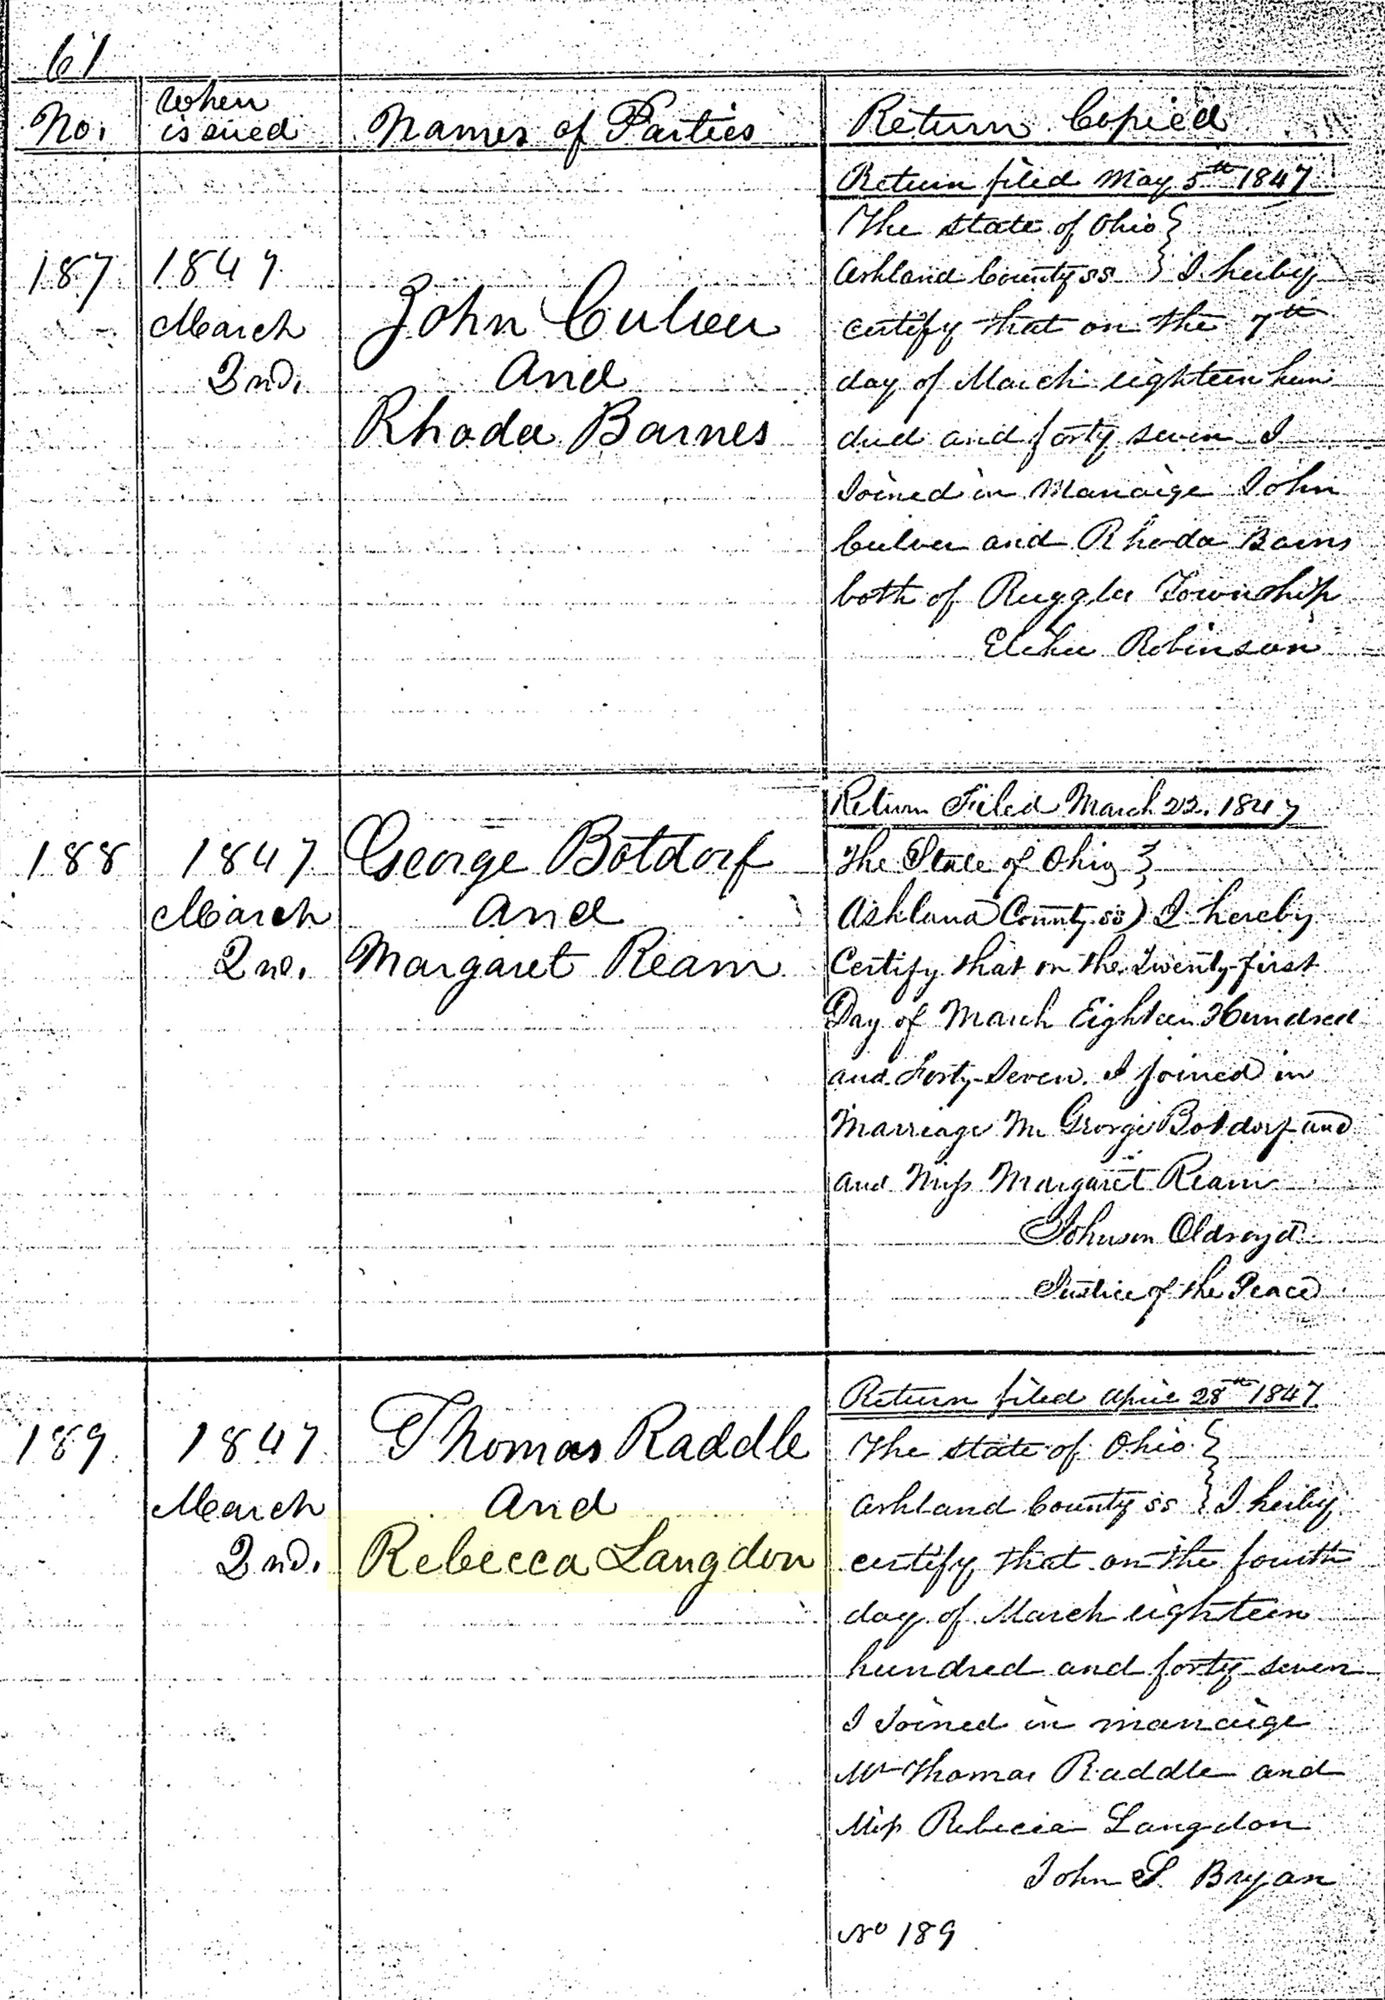 61
No.
When
issued
Names of Parties
Return Copied
187
1847
March
2nd.
John Culver
and
Rhoda Barnes
Return filed May 5th 1847
The state of Ohio }
Ashland County ss } I heiby
certify that on the 7th
day of March eighteen hun
dred and forty seven I
Joined in Manaige John
Culver and Rhoda Barns
both of Ruggles Township
Elihu Robinson
188
1847
March
2nd.
George Botdorf
and
Margaret Ream
Return Filed March 22. 1847
The State of Ohio }
Ashland County ss) I hereby
Certify that on the Twenty-first
Day of March Eighteen Hundred
and Forty-Seven. I joined in
Marriage Mr George Botdorf and
and Miss Margaret Ream
Johnson Oldroyd
Justice of the Peace
189
1847
March
2nd.
Thomas Raddle
and
Rebecca Langdon
Return filed April 28th 1847
The state of Ohio }
Ashland County ss } I heiby
certify that on the fourth
day of March eighteen
hundred and forty seven
I Joined in manaige
Mr Thomas Raddle and
Miss Rebecca Langdon
John S. Bryan
No 189